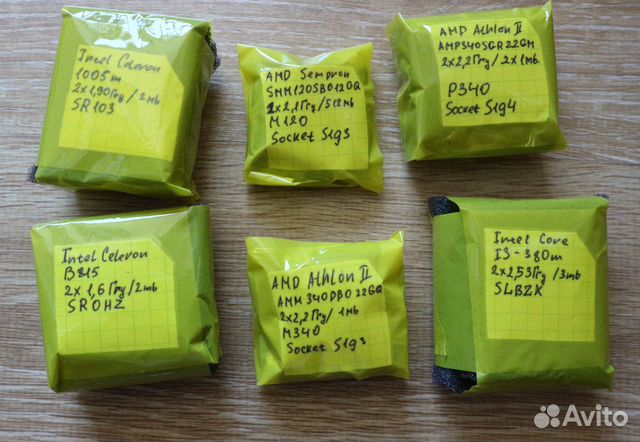 Intel Celeron
1005m
2x1,90Ггц/2mb
SR103
AMD Sempron
SMM120SBO12GQ
1x2,1Ггц/512mb
M120
Socket S1g3
AMD Athlon II
AMP340SGR22GM
2x2,2Ггц/2x1mb.
P340
Socket S1g4
Intel Celeron
B815
2x1,6Ггц/2mb
SR0HZ
AMD Athlon II
AMM340DBO22GQ
2x2,2Ггц/1mb
M340
Socket S1g3
Intel Core
I3-380m
2x2,53Ггц/3mb
SLBZX
Avito